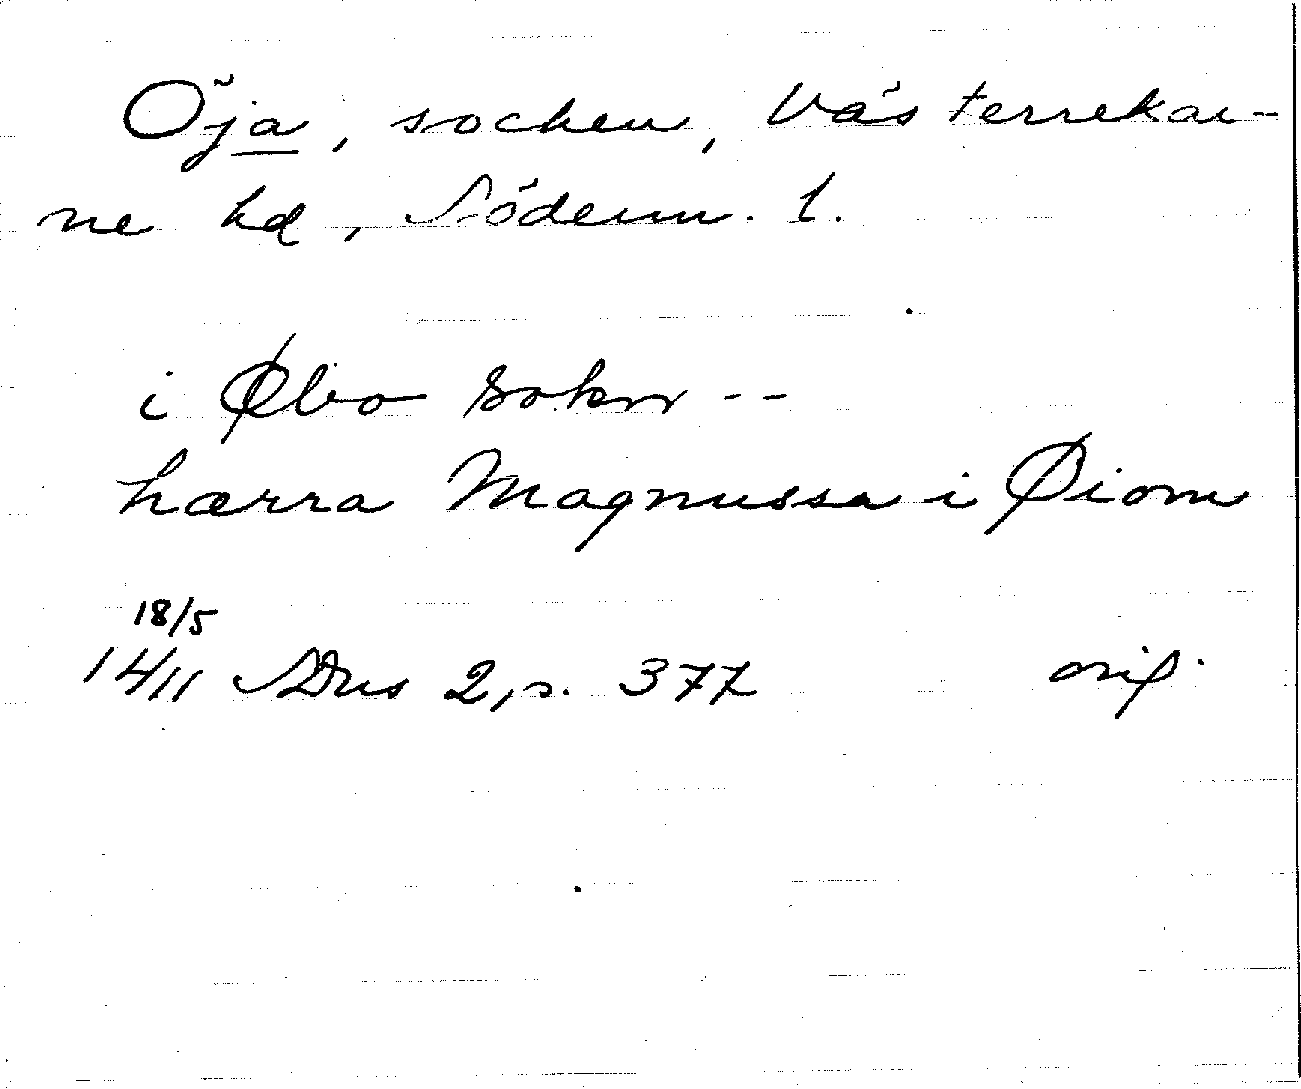 Öja, socken, Västerrekar-
ne hd, Söderm. l.
i Øbo sokn --
hærra Magnussa i Øiom
18/5
1411 SDns 2, s. 377 orig.